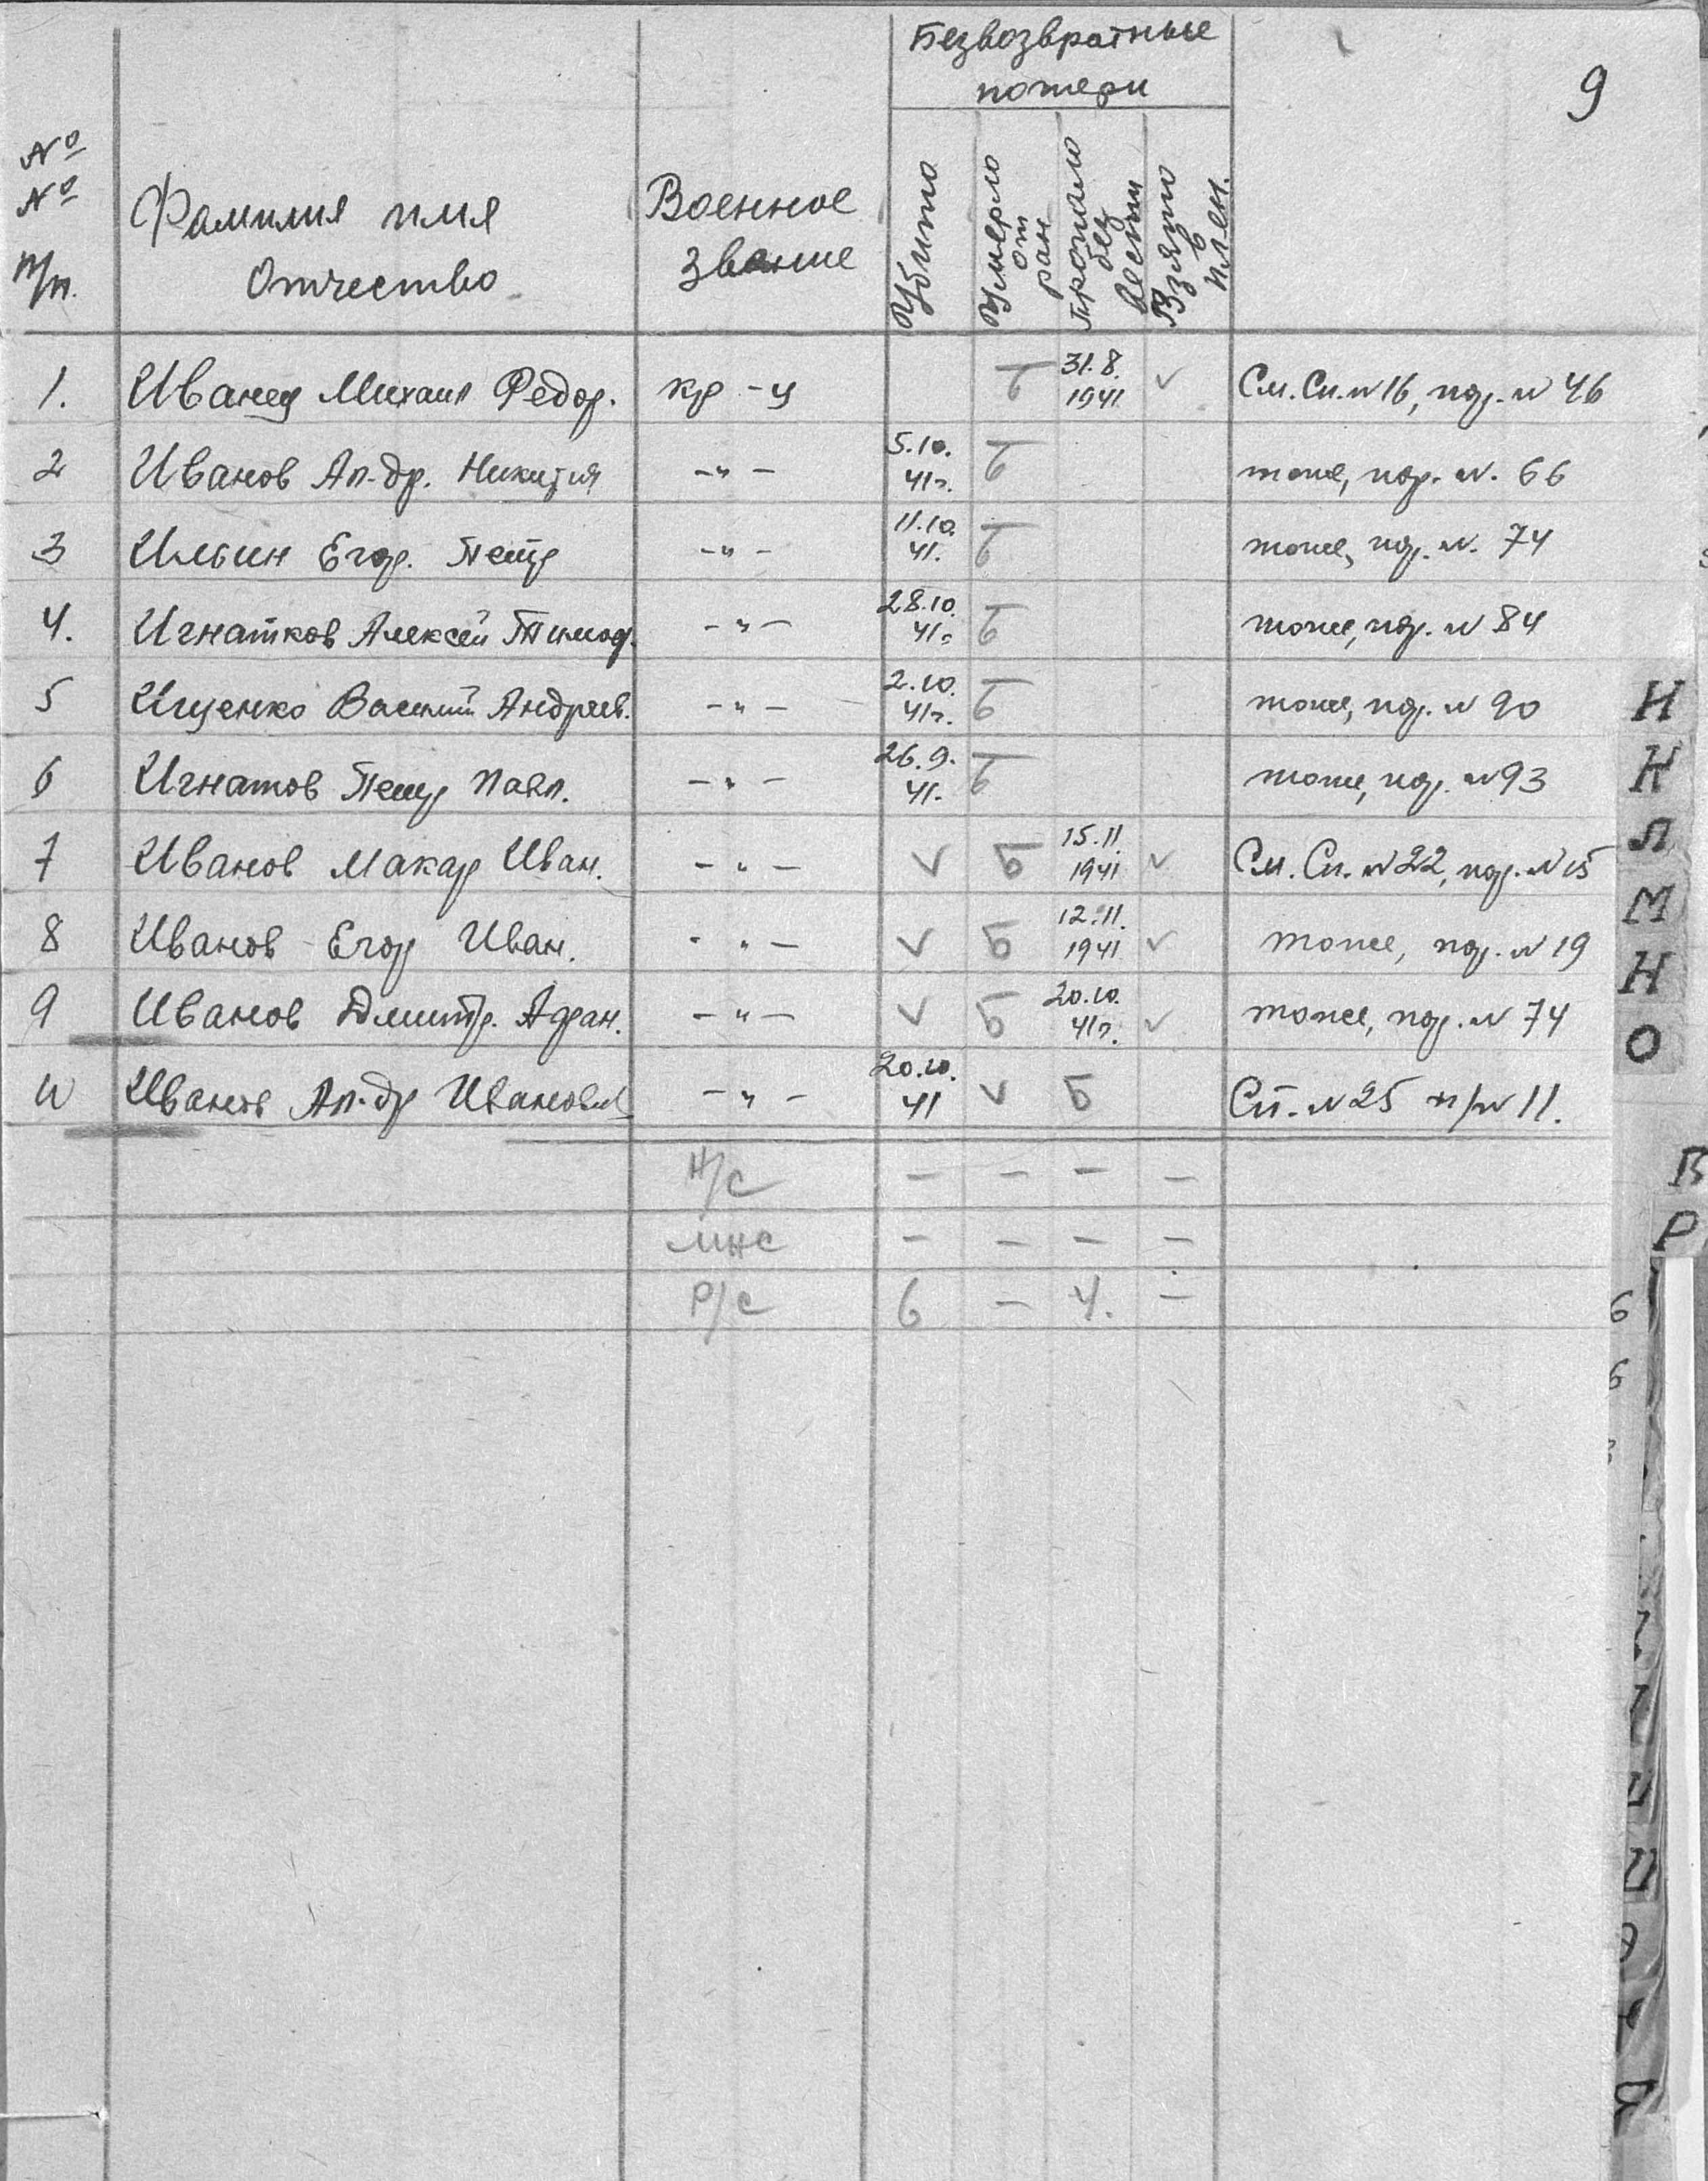 9
Безвозвратные
потери
№
№
п/п.
Фамилия имя
Отчество
Военное
звание
Убито
Умерло
от
ран
Пропало
без
вести
Взято
в
плен.
1. Иванец Михаил Федор. кр-ц Б 31.8. 1941 v См. Сп. №16, пор. № 46
2 Иванов Ал-др. -"- 5.10. 41г. Б тоже, пор. №. 66
3 Ильин Егор. Петр -"- 11.10. 41. Б тоже, пор. №. 74
4. Игнатков Алексей Тимоф. -"- 28.10. 41г. Б тоже, пор. № 84
5 Ищенко Василий Андреев. -"- 2.10. 41г. Б тоже, пор. № 90
6 Игнатов Петр Павл. -"- 26.9. 41. Б тоже, пор. №93
7 Иванов Макар Иван. -"- v Б 15.11. 1941 v См. Сп. №22, пор. №15
8 Иванов Егор Иван. -"- v Б 12.11. 1941 v тоже, пор. № 19
9 Иванов Дмитр. -"- v Б 20.10. 41г. v тоже, пор. № 74
10 Иванов Ал-др Иванович -"- 20.10. 41 v Б Сп. №25 п/№ 11.
Н/С - - - -
МНС - - - -
Р/С 6 - 4. -
Н
Н
Л
М
Н
О
В
Р